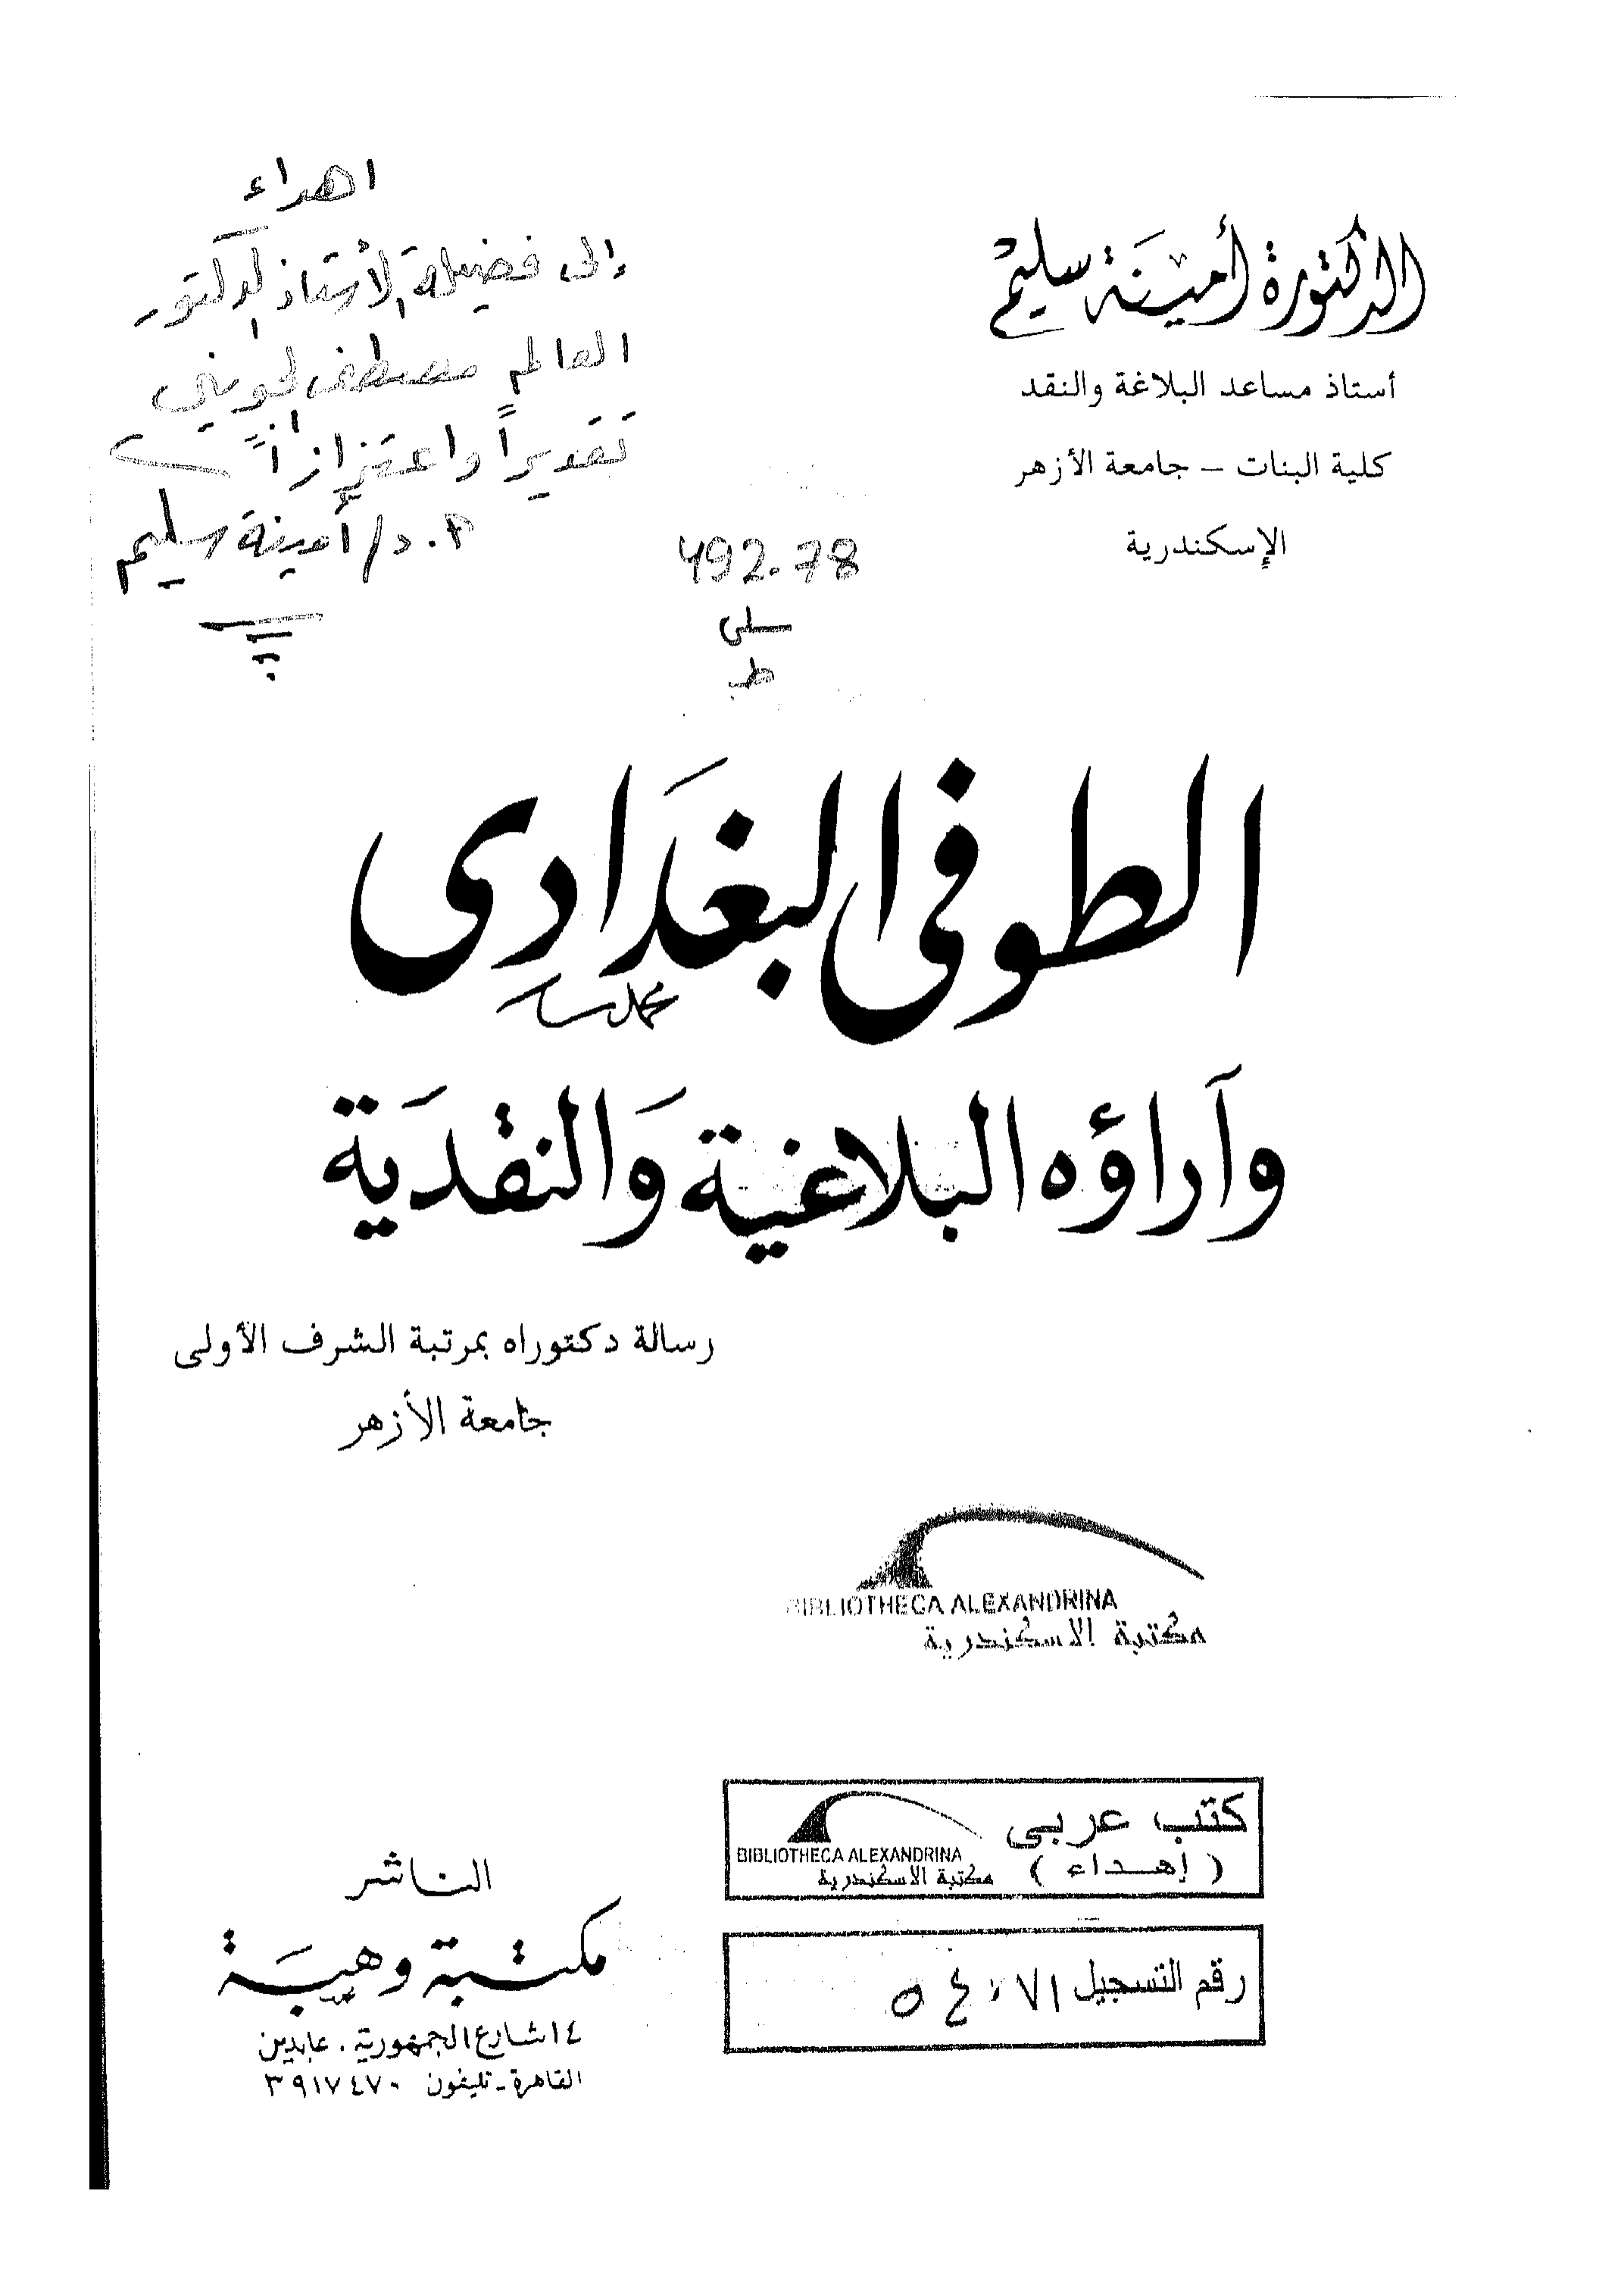 الدكتورة أمينة سليم
أستاذ مساعد البلاغة والنقد
كلية البنات – جامعة الأزهر
الإسكندرية
اهداء
إلى فضيلة الأستاذ الدكتور
العالم مصطفى الجوينى
تقديراً واعتزازاً
أ.د/ أمينة سليم
492.78
سلى
ط
الطوفى البغدادى
وآراؤه البلاغية والنقدية
رسالة دكتوراه بمرتبة الشرف الأولى
جامعة الأزهر
BIBLIOTHECA ALEXANDRINA
مكتبة الاسكندرية
كتب عربى
( إهداء )
BIBLIOTHECA ALEXANDRINA
مكتبة الاسكندرية
رقم التسجيل
الناشر
مكتبة وهبة
١٤ شارع الجمهورية . عابدين
القاهرة - تليفون ٣٩١٧٤٧٠